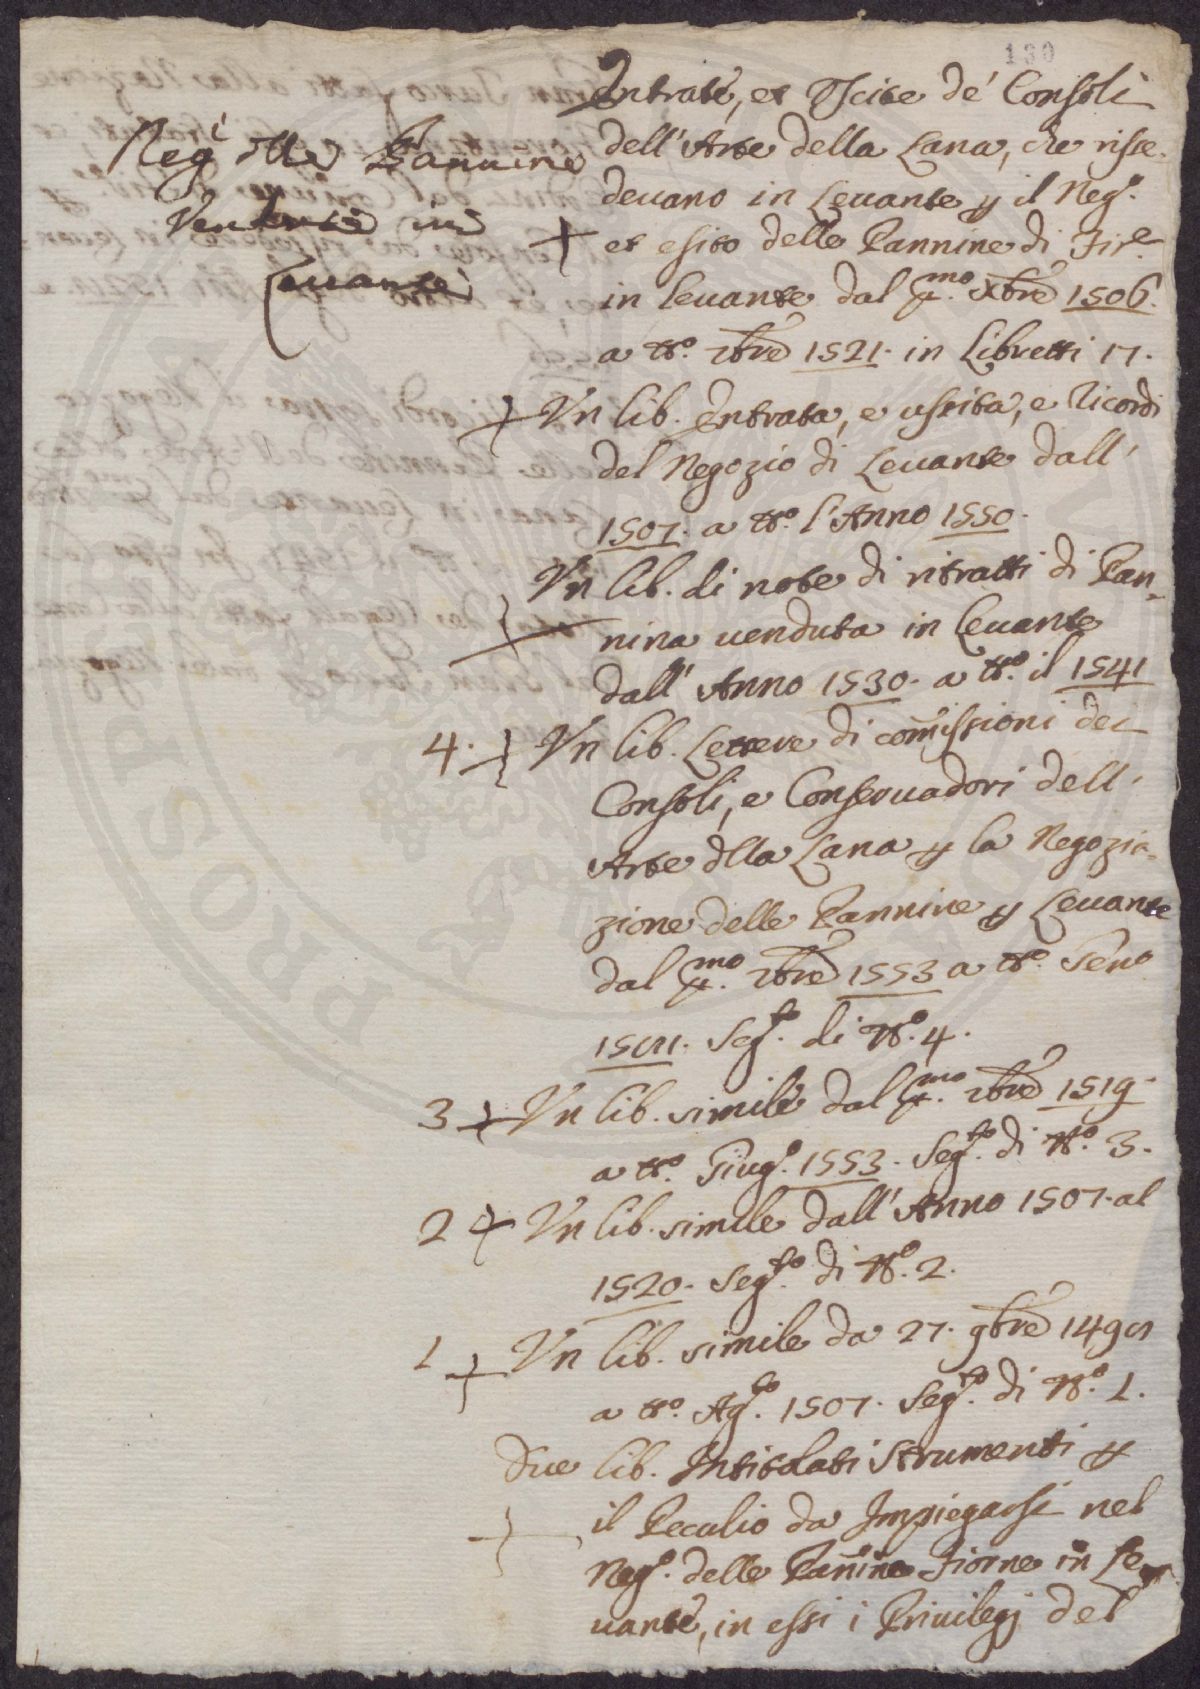 130
Negi dlle Pannine
Vendute in
Levante
Intrate, et Vscite de' Consoli
dell'Arte della Lana, che risse=
devano in Levante p il Neg.º
et esito delle Pannine di Fire
in Levante dal p.mo Xbre 1506.
a tt.º 7bre 1521. in Libretti 17.
Vn lib. Intrata, e uscita, e Ricordi
del Negozio di Levante dall'
1507. a tt.º l'Anno 1550.
Vn lib. di note di ritratti di Pan=
nina venduta in Levante
dall'Anno 1530. a tt.º il 1541
4. Vn lib. Lettere di comissioni dei
Consoli, e Conservadori dell'
Arte dlla Lana p la Negozia=
zione delle Pannine p Levante
dal p.mo 7bre 1553 a tt.º Geno
Seg.to di N.º 4.
3 Vn lib. simile dal p.mo 7bre 1519.
a tt.º Giug.º 1553. Seg.to di N.º 3.
2 Vn lib. simile dall'Anno 1507. al
1520. Seg.to di N.º 2.
1 Vn lib. simile da 27. 9bre
a tt.º Ag.to 1507. Seg.to di N.º 1.
Due lib. Intitolati Strumenti p
il Peculio da Impiegarsi nel
Neg.º delle Pannine Fiorne in Le=
vante, in essi i Privilegj del